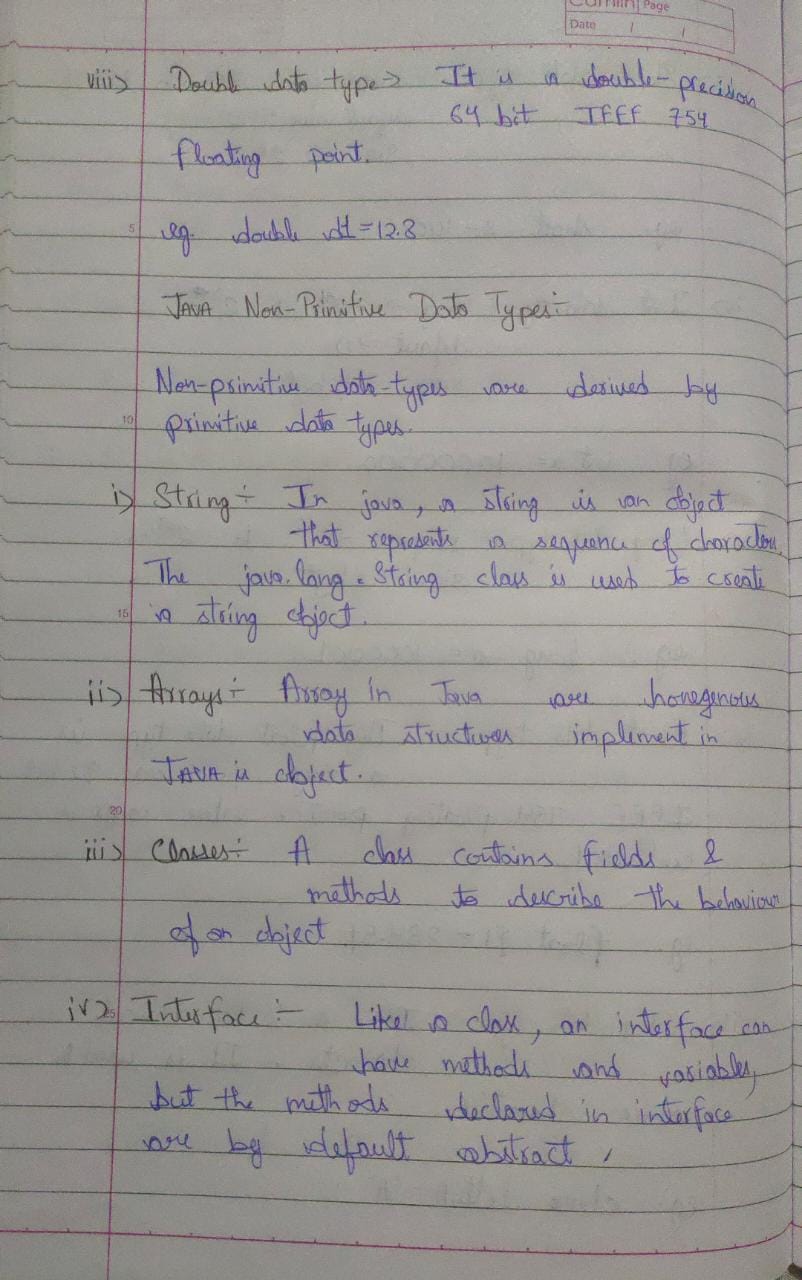 Page
Date / /
viii> Double data type => It is a double-precision
64 bit IEEE 754
floating point.
5 eg. double d1 = 12.3
JAVA Non-Primitive Data Types:-
Non-primitive data-types are derived by
10 primitive data types.
i> String :- In java, a string is an object
that represents a sequence of characters.
The java.lang.String class is used to create
15 a string object.
ii> Arrays :- Array in Java are homogenous
data structures implement in
JAVA is object.
20
iii> Classes :- A class contains fields &
methods to describe the behaviour
of an object
iv> Interface :- Like a class, an interface can
have methods and variables,
but the methods declared in interface
are by default abstract,